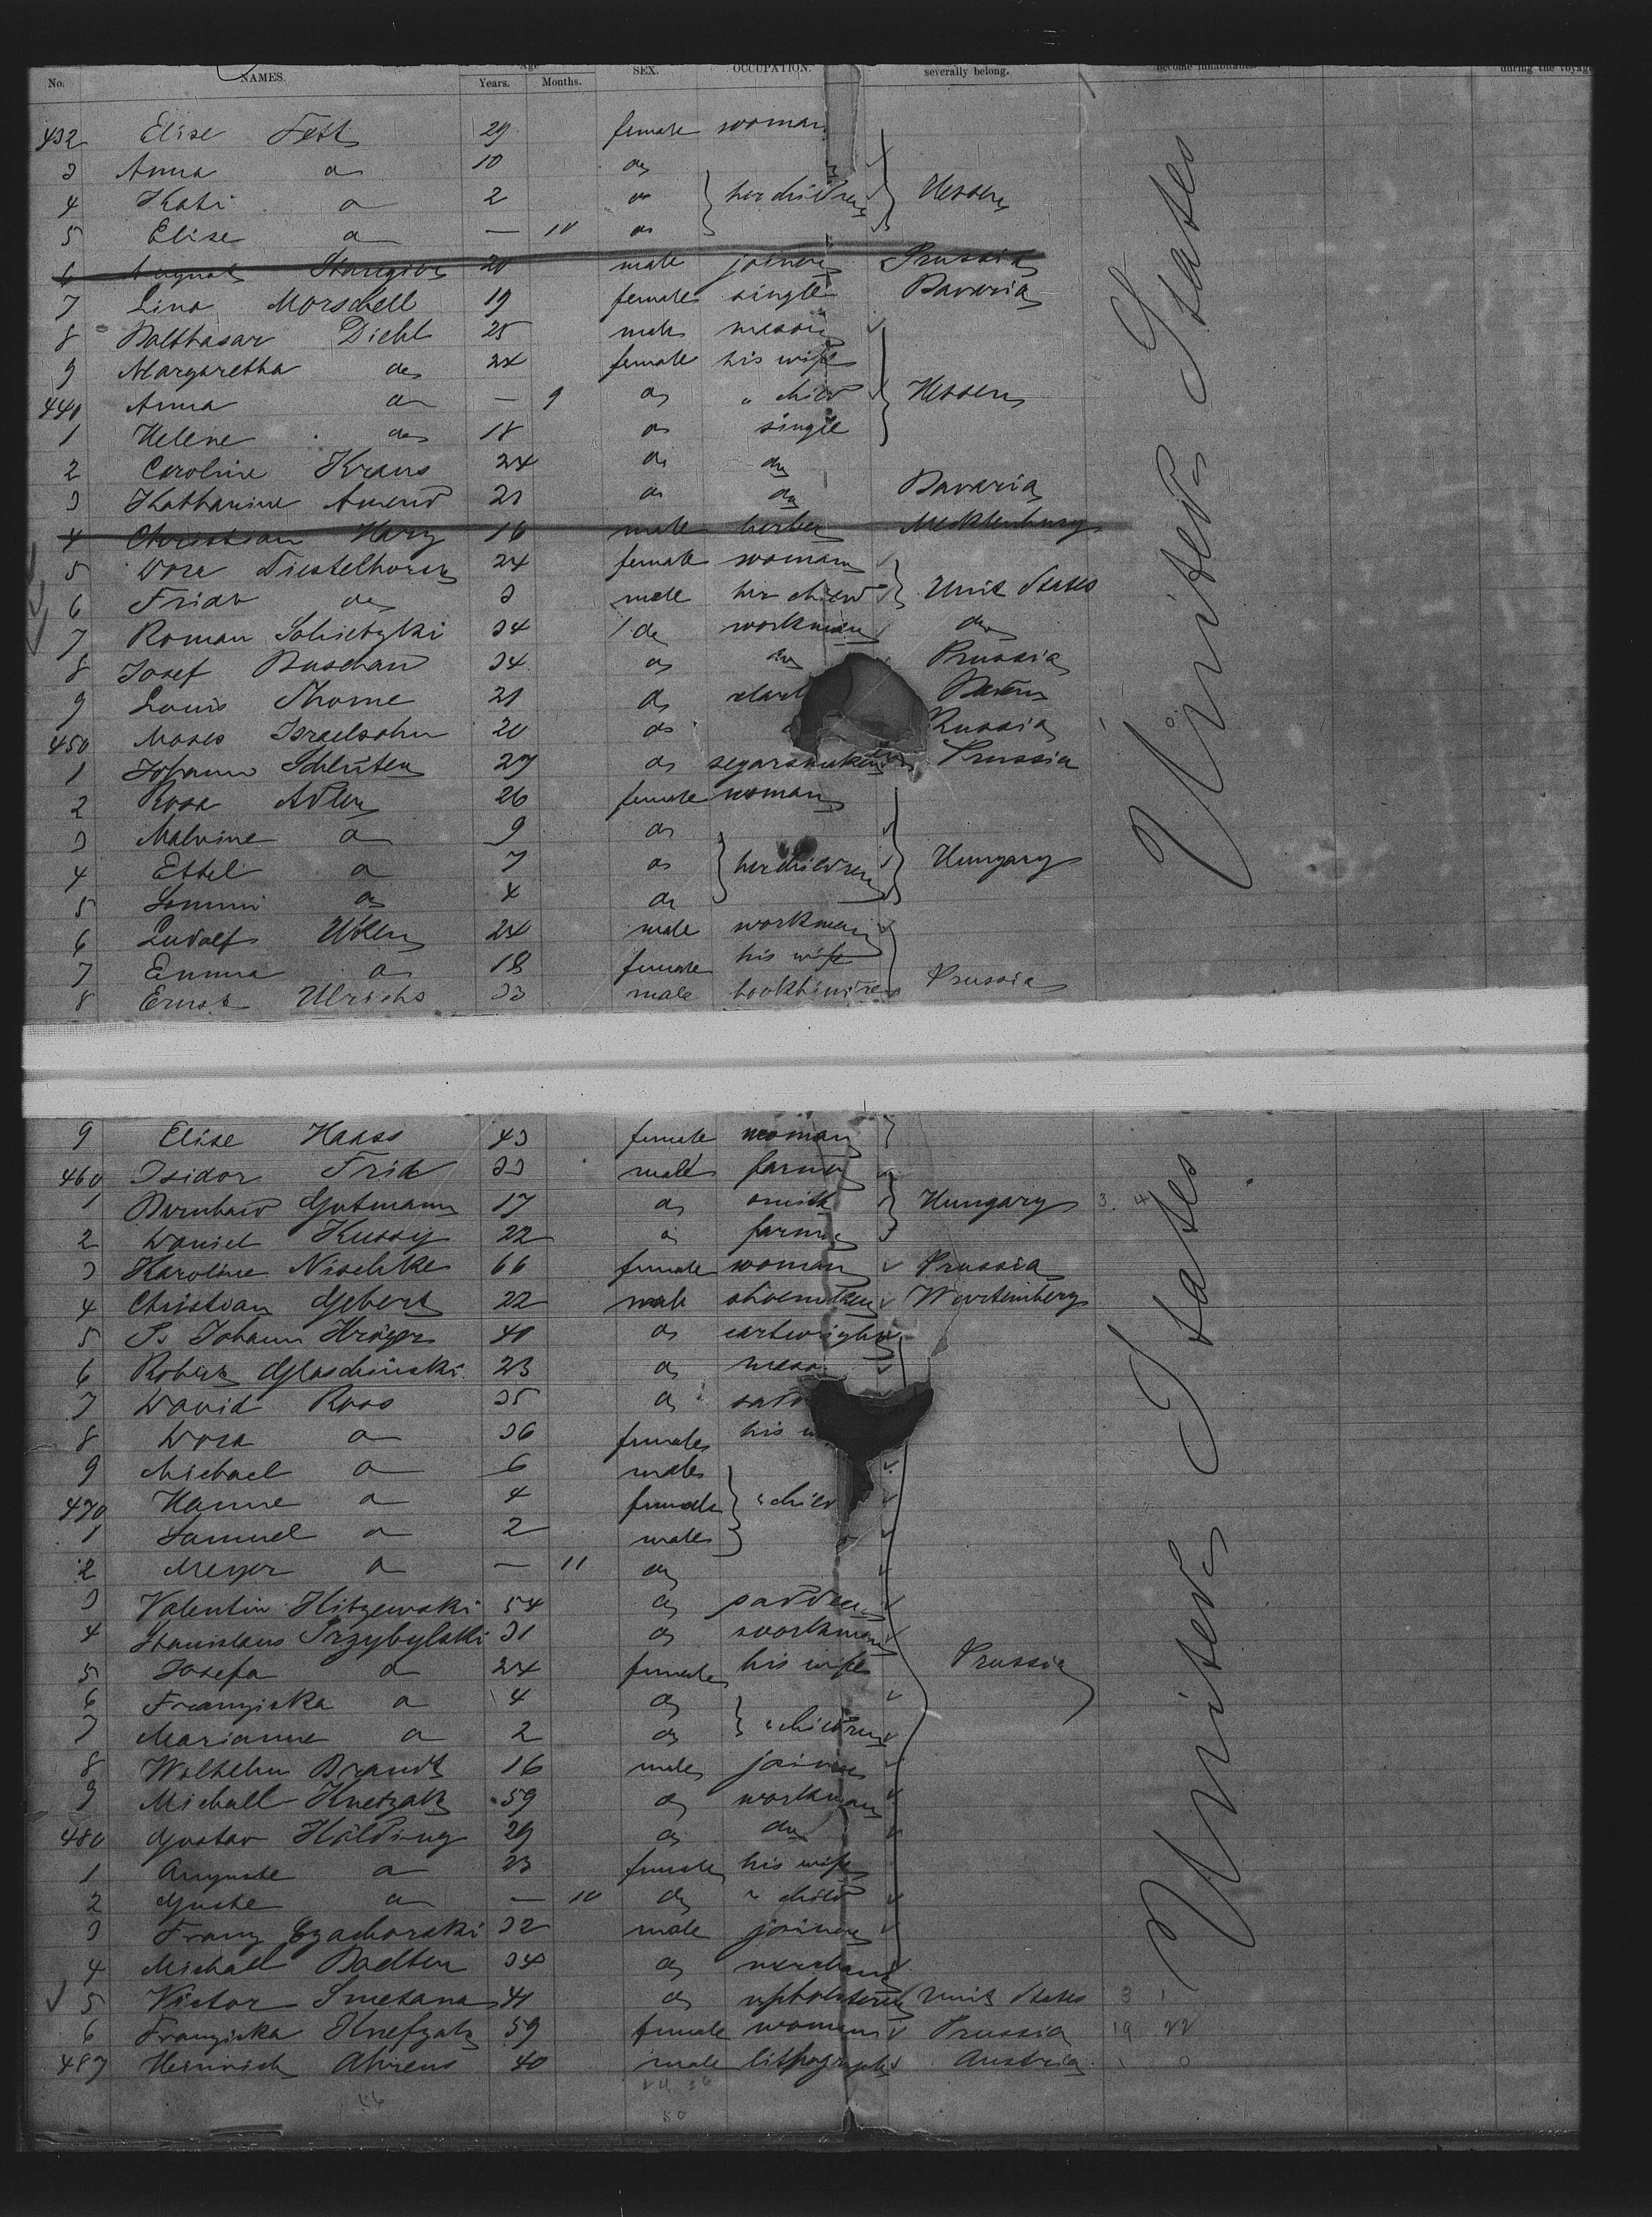 No. NAMES. Age Years. Months. SEX. OCCUPATION. severally belong. become inhabitants during the voyage
432 Elise Fett 29 female woman
3 Anna do 10 do
4 Kati do 2 do her children Hessen
5 Elise do — 10 do
6 August 20 male joiner Prussia
7 Lina Morschell 19 female single Bavaria
8 Balthasar Diehl 25 male mason
9 Margaretha do 24 female his wife
440 Anna do — 9 do " child Hessen
1 Helene do 18 do single
2 Caroline Kraus 24 do do
3 Katharine Amend 21 do do Bavaria
4 Christian Harz 16 male Mecklenburg
5 Dora Diestelhorst 24 female woman
6 Frido do 3 male her child Unit States
7 Roman 34 do workman do
8 Josef Buschau 34 do do Prussia
9 Louis Thome 21 do Baden
450 Moses Israelsohn 20 do Russia
1 Johann Schlüter 27 do segarmaker Prussia
2 Rosa Adler 26 female woman
3 Malvine do 9 do
4 Ethel do 7 do her children Hungary
5 Sammi do 4 do
6 Ludolf 24 male workman
7 Emma do 18 female his wife
8 Ernst Ulrichs 33 male bookbinder Prussia
9 Elise Haass 43 female woman
460 Isidor Frid 33 male farmer
1 Bernhard Gutmann 17 do smith Hungary 3 4
2 Daniel Kussy 22 do farmer
3 Karoline Nischke 66 female woman Prussia
4 Christian Gebert 22 male shoemaker Wurtemberg
5 Johann Kröger 40 do cartwright
6 Robert Glaschinski 23 do
7 David Roos 35 do
8 Dora do 36 female his
9 Michael do 6 male
470 Hanne do 4 female " child
1 Samuel do 2 male
2 Meyer do — 11 do
3 Valentin Hitzewski 54 do saddler
4 Stanislaus Przybylski 31 do workman
5 Josefa do 24 female his wife Prussia
6 Franziska do 4 do
7 Marianne do 2 do " children
8 Wilhelm Brandt 16 male joiner
9 Michael Knefzak 59 do workman
480 Gustav Hölding 29 do do
1 Auguste do 23 female his wife
2 Guste do — 10 do " child
3 Franz Czachorski 32 male joiner
4 Michael 34 do merchant
5 Victor Smetana 41 do upholsterer Unit States 3 1
6 Franziska Knefzak 59 female woman Prussia 19 22
487 Heinrich Ahrens 40 male lithograph Austria 1 0
United States
United States